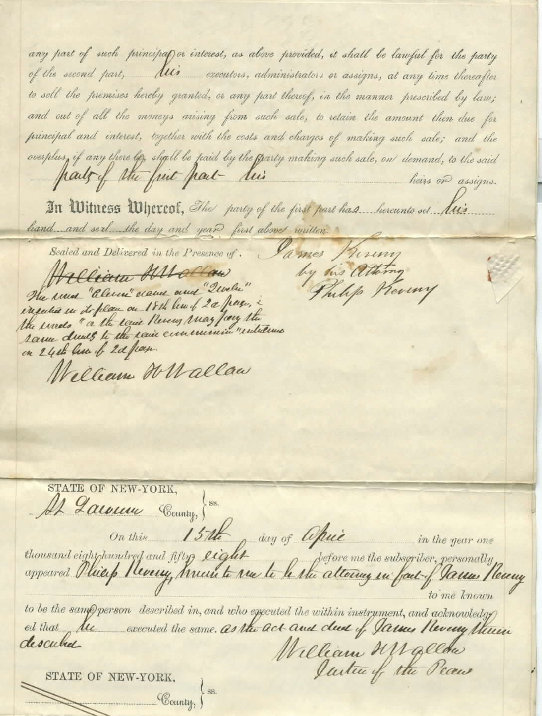 any part of such principal or interest, as above provided, it shall be lawful for the party
of the second part, his executors, administrators or assigns, at any time thereafter
to sell the premises hereby granted, or any part thereof, in the manner prescribed by law;
and out of all the moneys arising from such sale, to retain the amount then due for
principal and interest, together with the costs and charges of making such sale; and the
overplus, if any there be, shall be paid by the party making such sale, on demand, to the said
party of the first part his heirs or assigns.
In Witness Whereof, The party of the first part has hereunto set his
hand and seal the day and year first above written.
Sealed and Delivered in the Presence of
James Kenny
by his Attorney
Philip Kenny
William H Wallace
The word
inserted in on 18th line of 2d page, &
the words "or the said may pay the
same to the said
on 24th line of 2d page.
William H Wallace
STATE OF NEW-YORK,
St Lawrence County, } ss.
On this 15th day of April in the year one
thousand eight hundred and fifty eight before me the subscriber, personally
appeared Philip Kenny, known to me to be the attorney in fact of James Kenny
to me known
to be the same person described in, and who executed the within instrument, and acknowledg-
ed that he executed the same. as the act and deed of James Kenny therein
described
William H Wallace
Justice of the Peace
STATE OF NEW-YORK.
County, } ss.